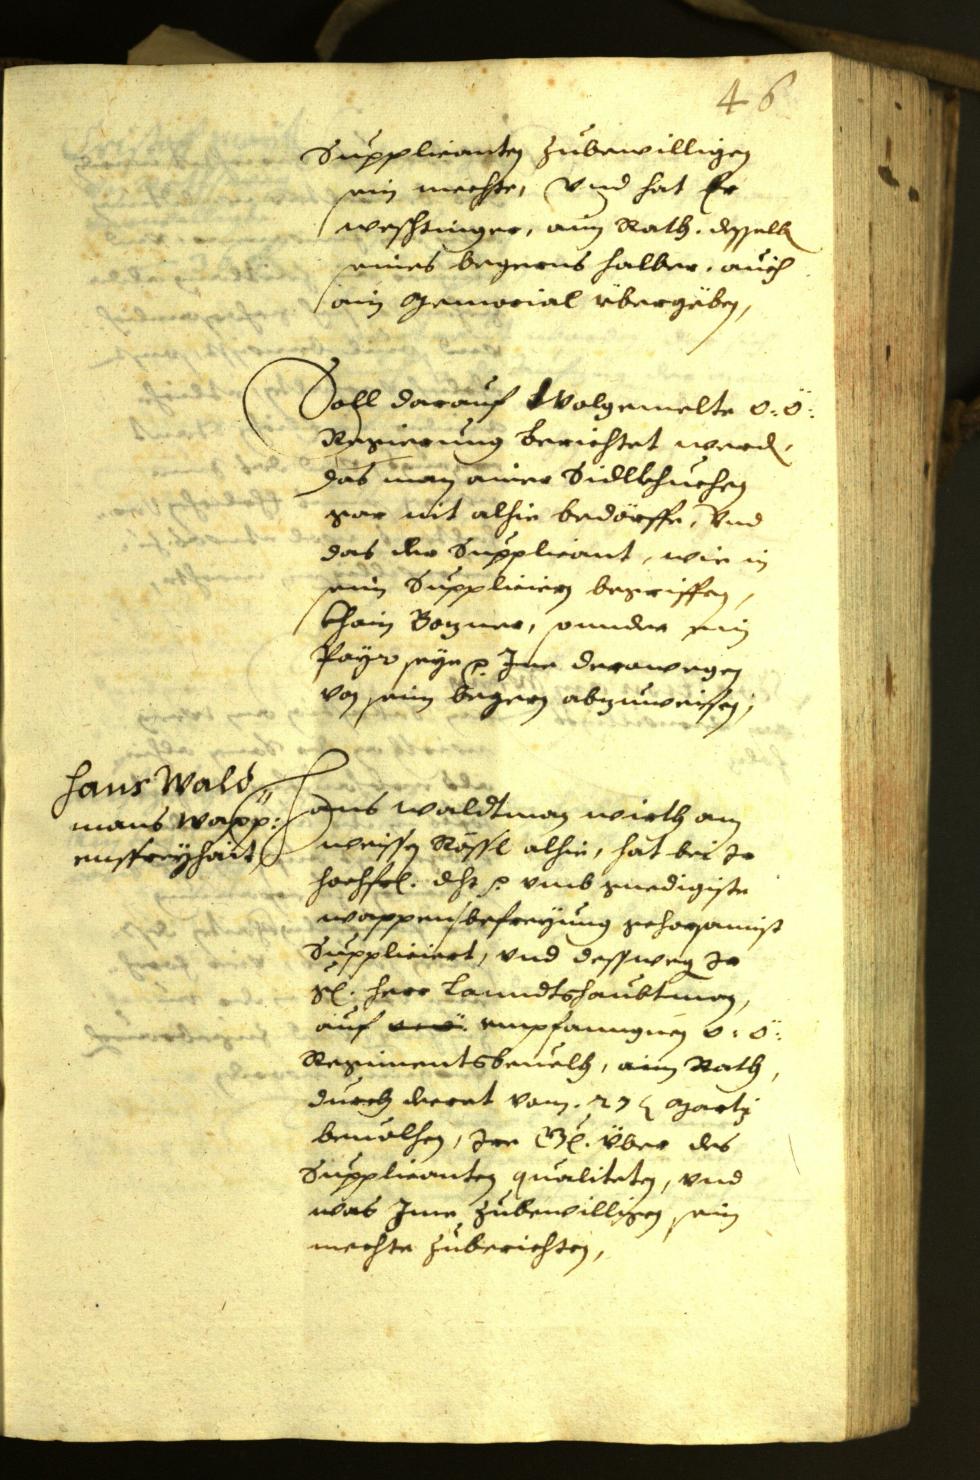 46
Supplicanten zubewilligen
sein mechte, Vnd hat Er
weschtinger, aim Rath. desselb
seines begerns halber, auch
ain Memorial vbergeben,
Soll darauf Wolgemelte o: ö:
Regierung berichtet werd,
das man ainer Sidlkhuchen
gar nit alhie bedörffe, Vnd
das der Supplicant, wie in
seim Supplicieren begriffen,
khain Bozner, sonnder ein
Payr seye, Ine derowegen
von seim begern abzuweisen,
Hans Wald
mans Wapp:
ensfreyhait
Hans Waldtman wirth am
weissen Rössl alhie, hat bei Ir
hochfrl. Dht umb gnedigiste
wappensbefreyung gehorsamist
Suppliciert, vnd desswegen Ir
Gl. herr Lanndtshaubtman,
auf empfanngnen o: ö:
Regimentsbeuelh, aim Rath,
durch decret vom 27 Marty
beuolhen, Ire Gl. Über des
Supplicanten qualiteten, vnd
was Ime zubewilligen sein
mechte zuberichten,